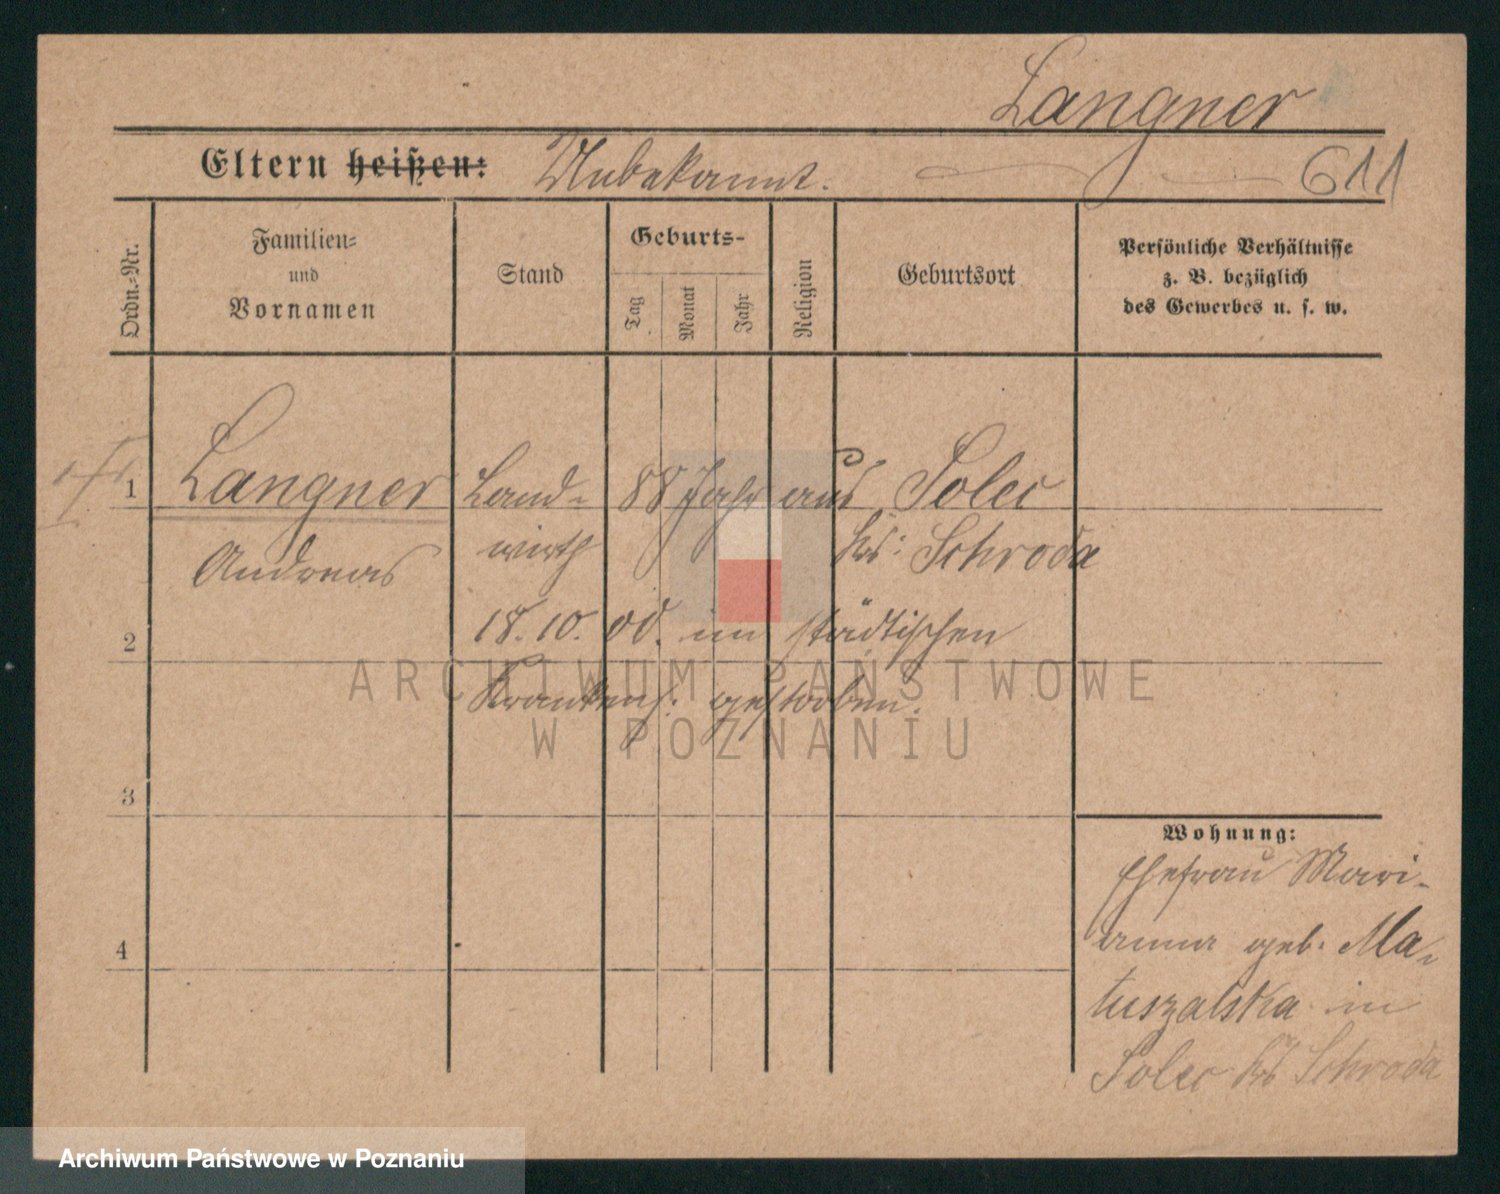 Langner
Eltern heißen: Unbekannt. 611
Ordn.-Nr.
Familien-
und
Vornamen
Stand
Geburts-
Tag
Monat
Jahr
Religion
Geburtsort
Persönliche Verhältnisse
z. B. bezüglich
des Gewerbes u. s. w.
1 Langner Land- 88 Jahr aus Solec
Andreas wirth Krs: Schroda
2 18.10.00. im städtischen
Krankenh: gestorben.
3
4
Wohnung:
Ehefrau Mari-
anna geb. Ma-
tuszalska in
Solec Krs Schroda
ARCHIWUM PAŃSTWOWE
W POZNANIU
Archiwum Państwowe w Poznaniu